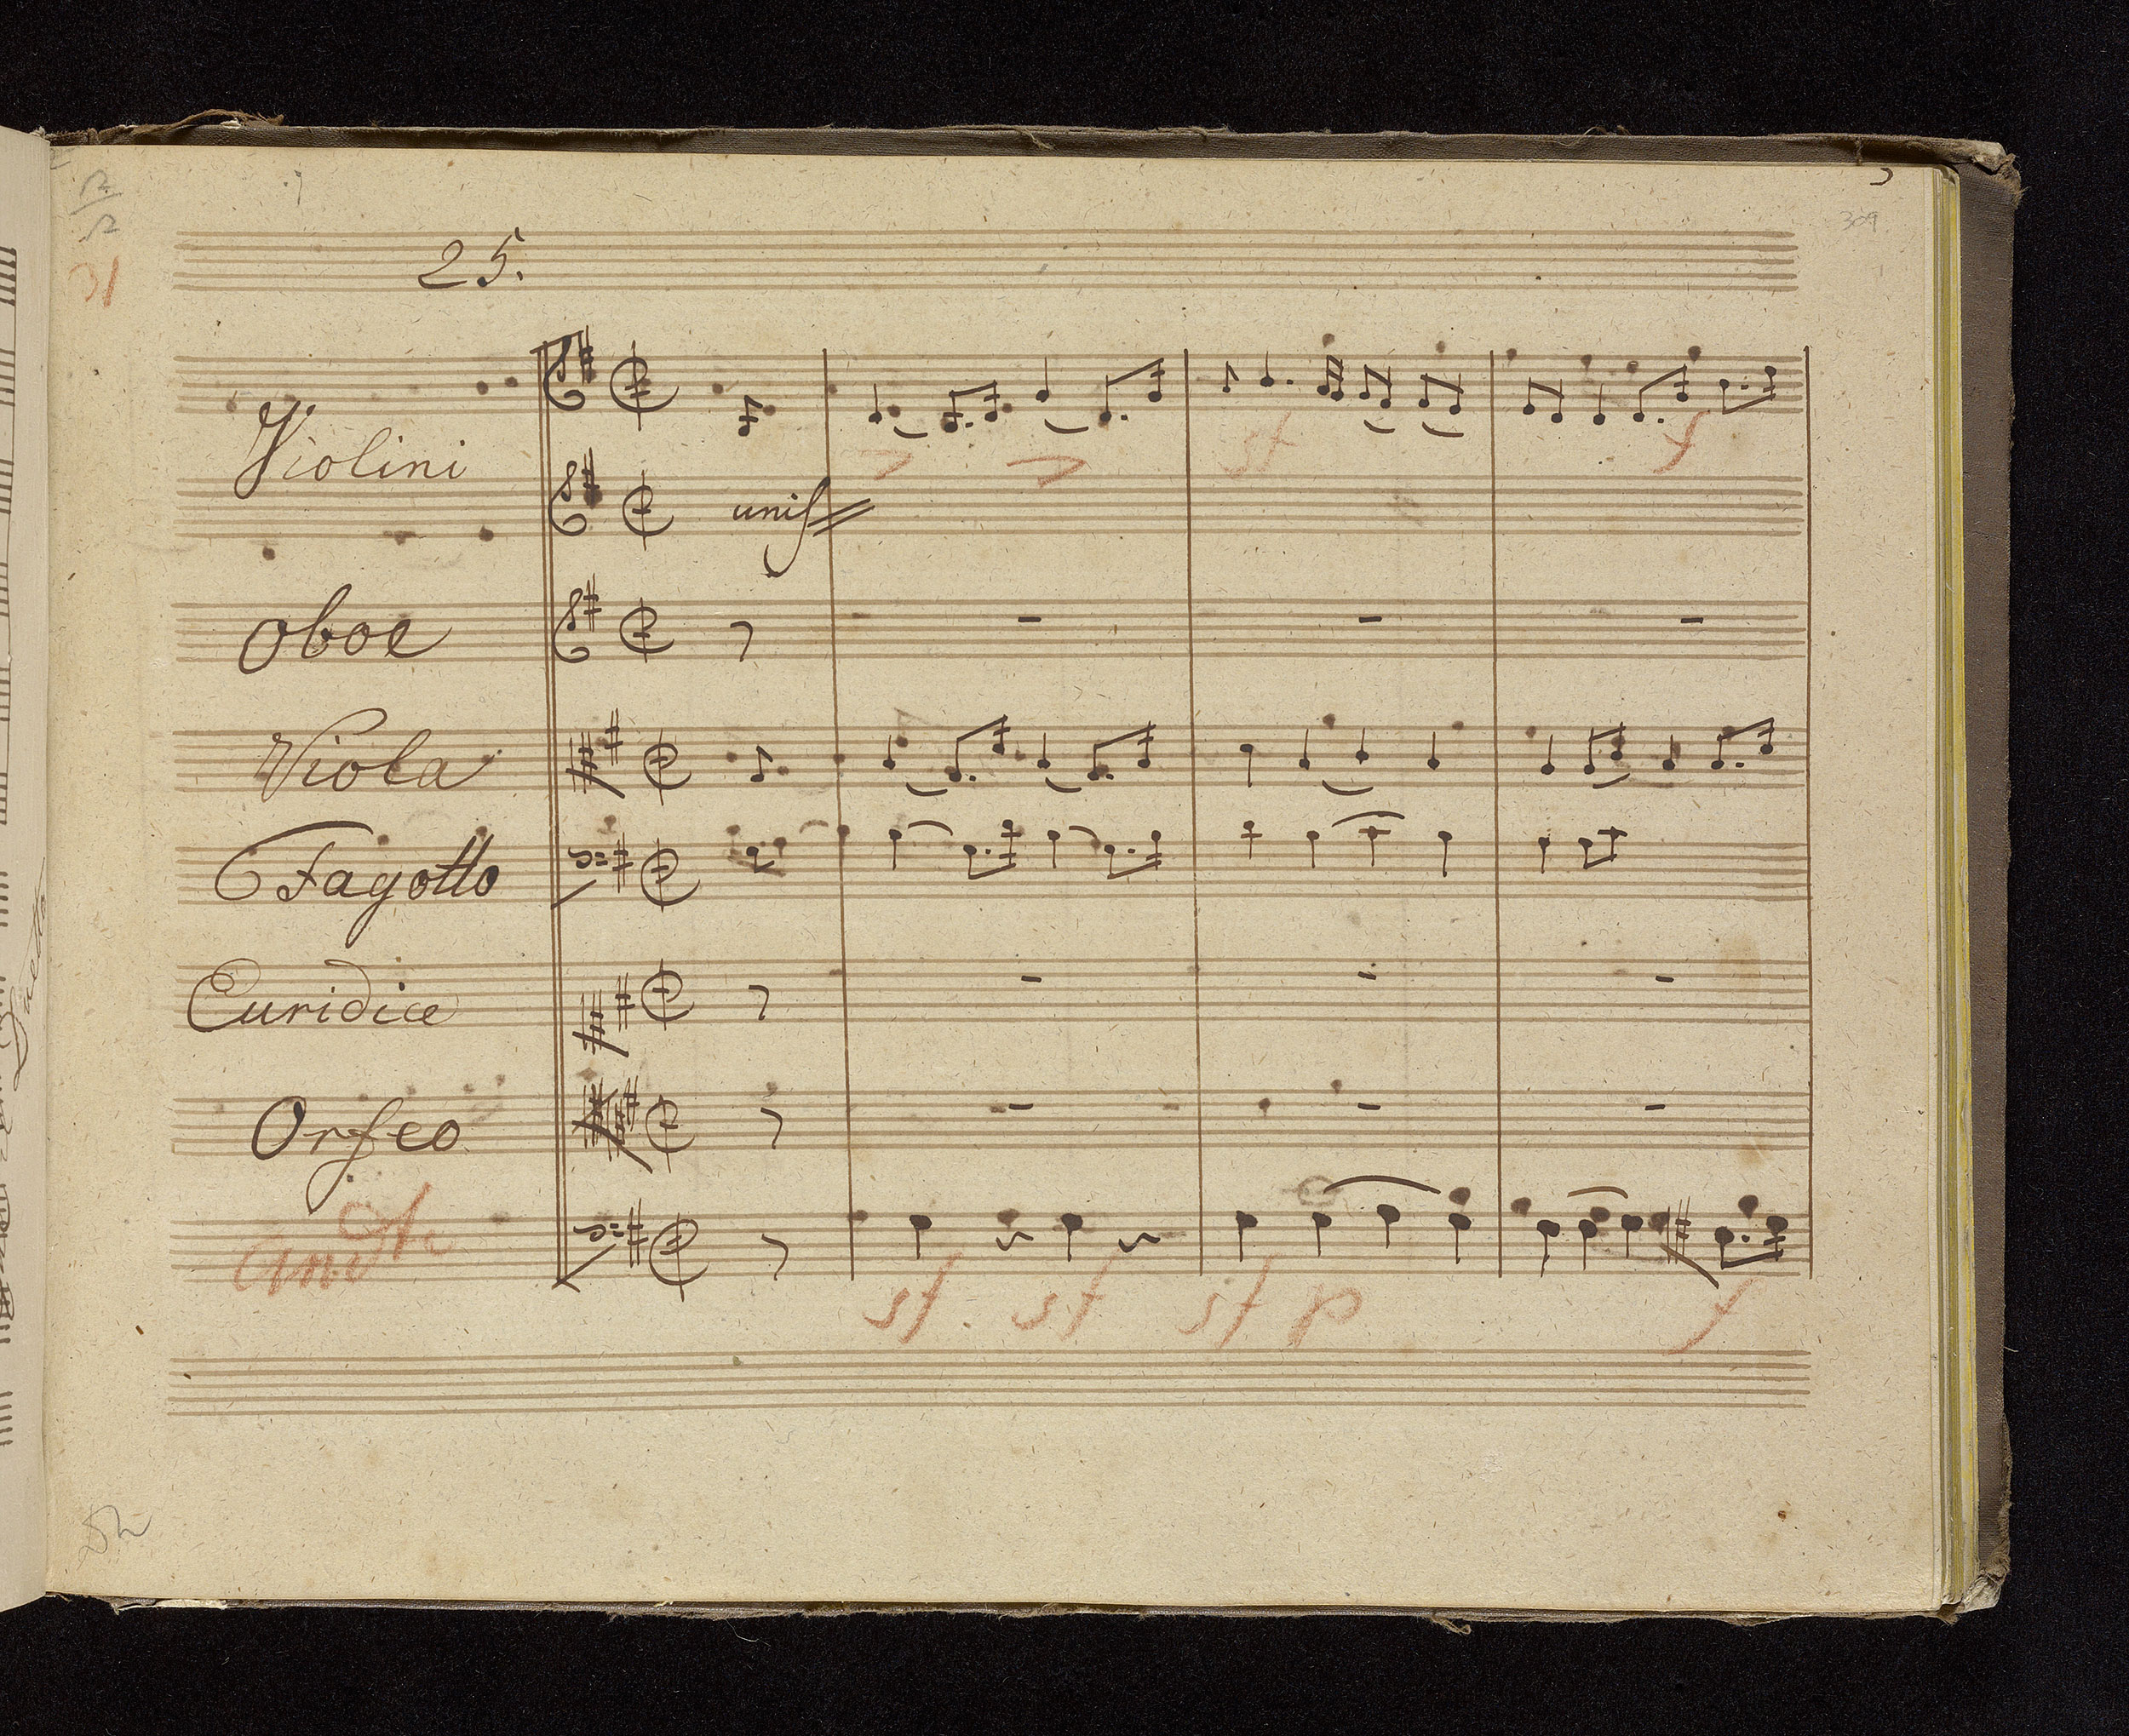 309
31
25.
Violini
sf
f
unis
Oboe
Viola
Fagotto
Euridice
Orfeo
andte
sf. sf sf p f